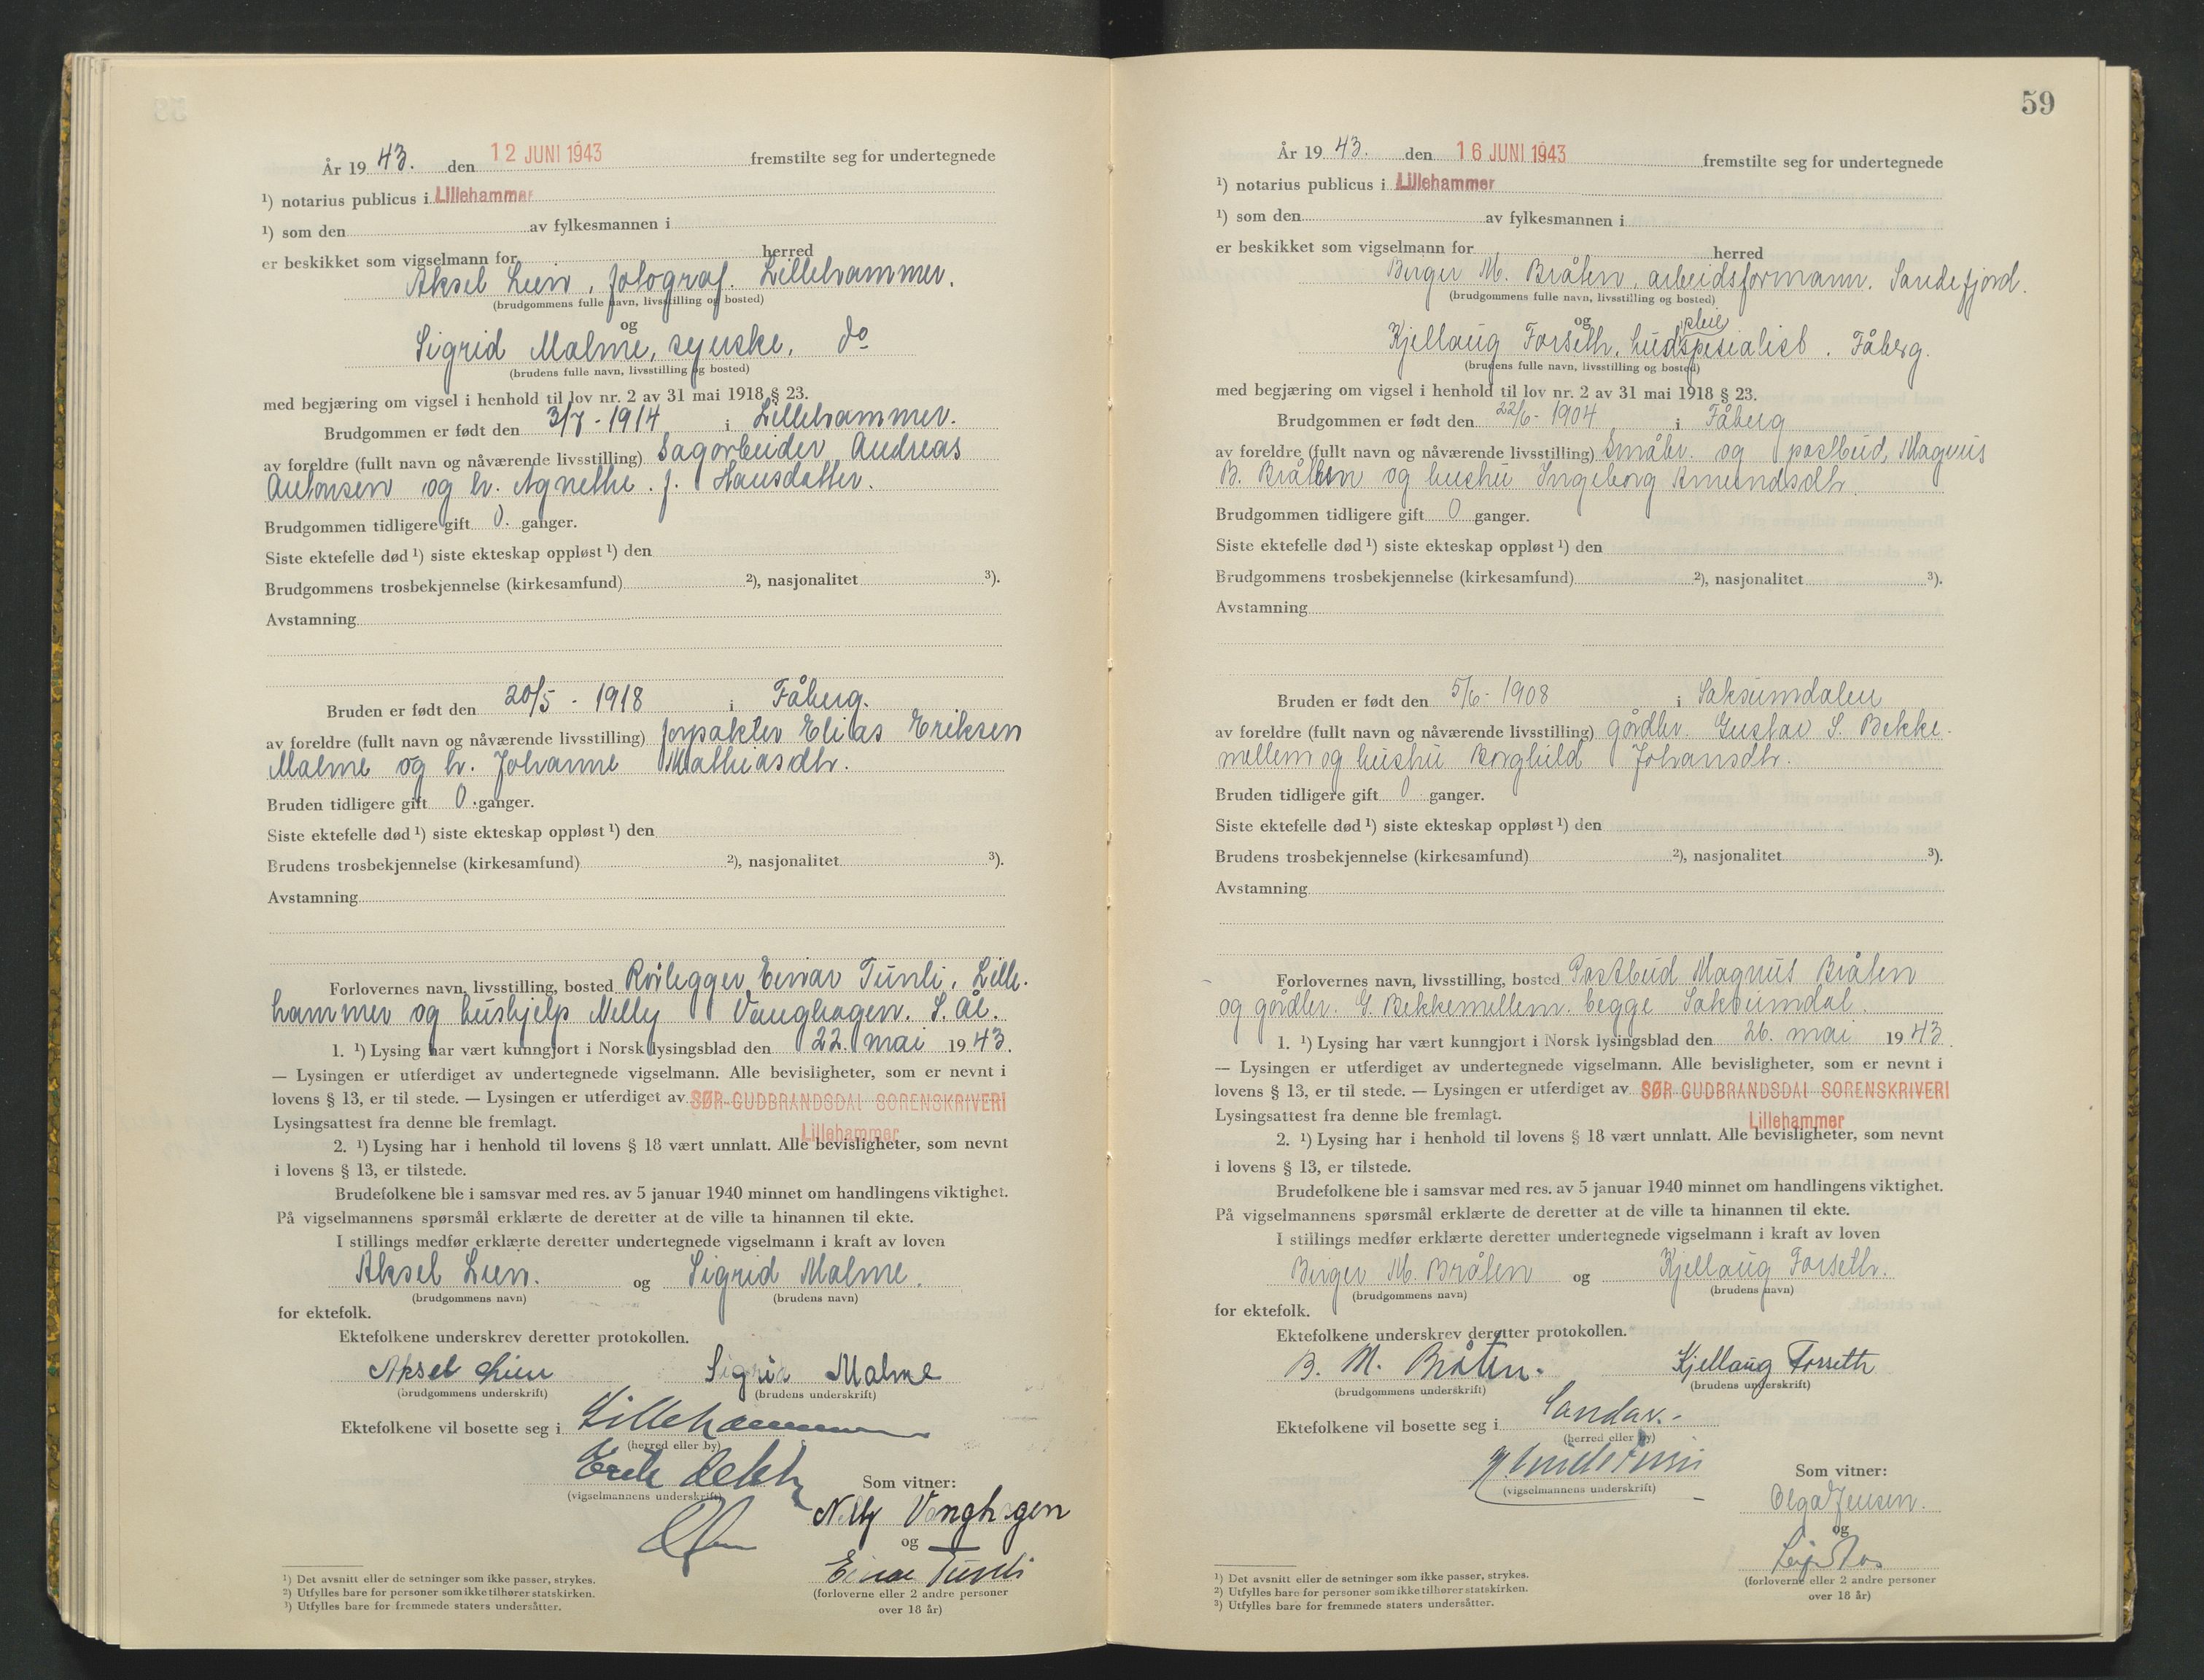 År 19 43. den 12 JUNI 1943 fremstilte seg for undertegnede
¹) notarius publicus i Lillehammer
¹) som den av fylkesmannen i
er beskikket som vigselmann for herred
Aksel Lien, fotograf. Lillehammer.
(brudgommens fulle navn, livsstilling og bosted)
og
Sigrid Malme, syerske, do
(brudens fulle navn, livsstilling og bosted)
med begjæring om vigsel i henhold til lov nr. 2 av 31 mai 1918 § 23.
Brudgommen er født den 3/7 - 1914 i Lillehammer.
av foreldre (fullt navn og nåværende livsstilling) Sagarbeider Andreas
Antonsen og h. Agnethe. f. Hansdatter.
Brudgommen tidligere gift 0. ganger.
Siste ektefelle død ¹) siste ekteskap oppløst ¹) den
Brudgommens trosbekjennelse (kirkesamfund) ²), nasjonalitet ³).
Avstamning
Bruden er født den 20/5 - 1918 i Fåberg.
av foreldre (fullt navn og nåværende livsstilling) forpakter Elias Eriksen
Malme og h. Johanne Mathiasdtr.
Bruden tidligere gift 0. ganger.
Siste ektefelle død ¹) siste ekteskap oppløst ¹) den
Brudens trosbekjennelse (kirkesamfund) ²), nasjonalitet ³).
Avstamning
Forlovernes navn, livsstilling, bosted Rørlegger Einar Tunli, Lille-
hammer og hushjelp Nelly Vanghagen. S. Ål.
1. ¹) Lysing har vært kunngjort i Norsk lysingsblad den 22. mai 19 43.
— Lysingen er utferdiget av undertegnede vigselmann. Alle bevisligheter, som er nevnt i
lovens § 13, er til stede. — Lysingen er utferdiget av SØR-GUDBRANDSDAL SORENSKRIVERI
Lysingsattest fra denne ble fremlagt.
Lillehammer
2. ¹) Lysing har i henhold til lovens § 18 vært unnlatt. Alle bevisligheter, som nevnt
i lovens § 13, er tilstede.
Brudefolkene ble i samsvar med res. av 5 januar 1940 minnet om handlingens viktighet.
På vigselmannens spørsmål erklærte de deretter at de ville ta hinannen til ekte.
I stillings medfør erklærte deretter undertegnede vigselmann i kraft av loven
Aksel Lien. og Sigrid Malme.
(brudgommens navn) (brudens navn)
for ektefolk.
Ektefolkene underskrev deretter protokollen.
Aksel Lien Sigrid Malme
(brudgommens underskrift) (brudens underskrift)
Ektefolkene vil bosette seg i Lillehammer
(herred eller by)
Som vitner:
(vigselmannens underskrift)
Nelly Vanghagen
og
Einar Tunli
(forloverne eller 2 andre personer
over 18 år)
¹) Det avsnitt eller de setninger som ikke passer, strykes.
²) Utfylles bare for personer som ikke tilhører statskirken.
³) Utfylles bare for fremmede staters undersåtter.
59
År 19 43. den 16 JUNI 1943 fremstilte seg for undertegnede
¹) notarius publicus i Lillehammer
¹) som den av fylkesmannen i
er beskikket som vigselmann for herred
Birger M. Bråten, arbeidsformann. Sandefjord.
(brudgommens fulle navn, livsstilling og bosted)
og
pleie
Kjellaug Forseth, hudspesialist. Fåberg.
(brudens fulle navn, livsstilling og bosted)
med begjæring om vigsel i henhold til lov nr. 2 av 31 mai 1918 § 23.
Brudgommen er født den 22/6 - 1904 i Fåberg
av foreldre (fullt navn og nåværende livsstilling) Småbr. og postbud, Magnus
B. Bråten og hustru Ingeborg Amundsdtr.
Brudgommen tidligere gift 0 ganger.
Siste ektefelle død ¹) siste ekteskap oppløst ¹) den
Brudgommens trosbekjennelse (kirkesamfund) ²), nasjonalitet ³).
Avstamning
Bruden er født den 5/6 - 1908 i Saksumdalen
av foreldre (fullt navn og nåværende livsstilling) gårdbr. Gustav S. Bekke-
mellem og hustru Borghild Johansdtr.
Bruden tidligere gift 0 ganger.
Siste ektefelle død ¹) siste ekteskap oppløst ¹) den
Brudens trosbekjennelse (kirkesamfund) ²), nasjonalitet ³).
Avstamning
Forlovernes navn, livsstilling, bosted Postbud Magnus Bråten
og gårdbr. G. Bekkemellem. begge Saksumdal.
1. ¹) Lysing har vært kunngjort i Norsk lysingsblad den 26. mai 19 43.
— Lysingen er utferdiget av undertegnede vigselmann. Alle bevisligheter, som er nevnt i
lovens § 13, er til stede. — Lysingen er utferdiget av SØR-GUDBRANDSDAL SORENSKRIVERI
Lysingsattest fra denne ble fremlagt.
Lillehammer
2. ¹) Lysing har i henhold til lovens § 18 vært unnlatt. Alle bevisligheter, som nevnt
i lovens § 13, er tilstede.
Brudefolkene ble i samsvar med res. av 5 januar 1940 minnet om handlingens viktighet.
På vigselmannens spørsmål erklærte de deretter at de ville ta hinannen til ekte.
I stillings medfør erklærte deretter undertegnede vigselmann i kraft av loven
Birger M. Bråten og Kjellaug Forseth.
(brudgommens navn) (brudens navn)
for ektefolk.
Ektefolkene underskrev deretter protokollen.
B. M. Bråten. Kjellaug Forseth
(brudgommens underskrift) (brudens underskrift)
Ektefolkene vil bosette seg i Sandar.-
(herred eller by)
Som vitner:
(vigselmannens underskrift)
Olga Jensen.
og
(forloverne eller 2 andre personer
over 18 år)
¹) Det avsnitt eller de setninger som ikke passer, strykes.
²) Utfylles bare for personer som ikke tilhører statskirken.
³) Utfylles bare for fremmede staters undersåtter.